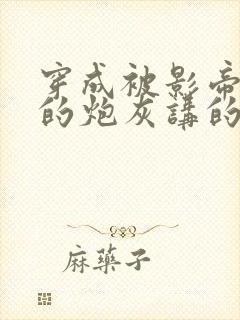 穿成被影帝
的炮灰講的
麻藥子